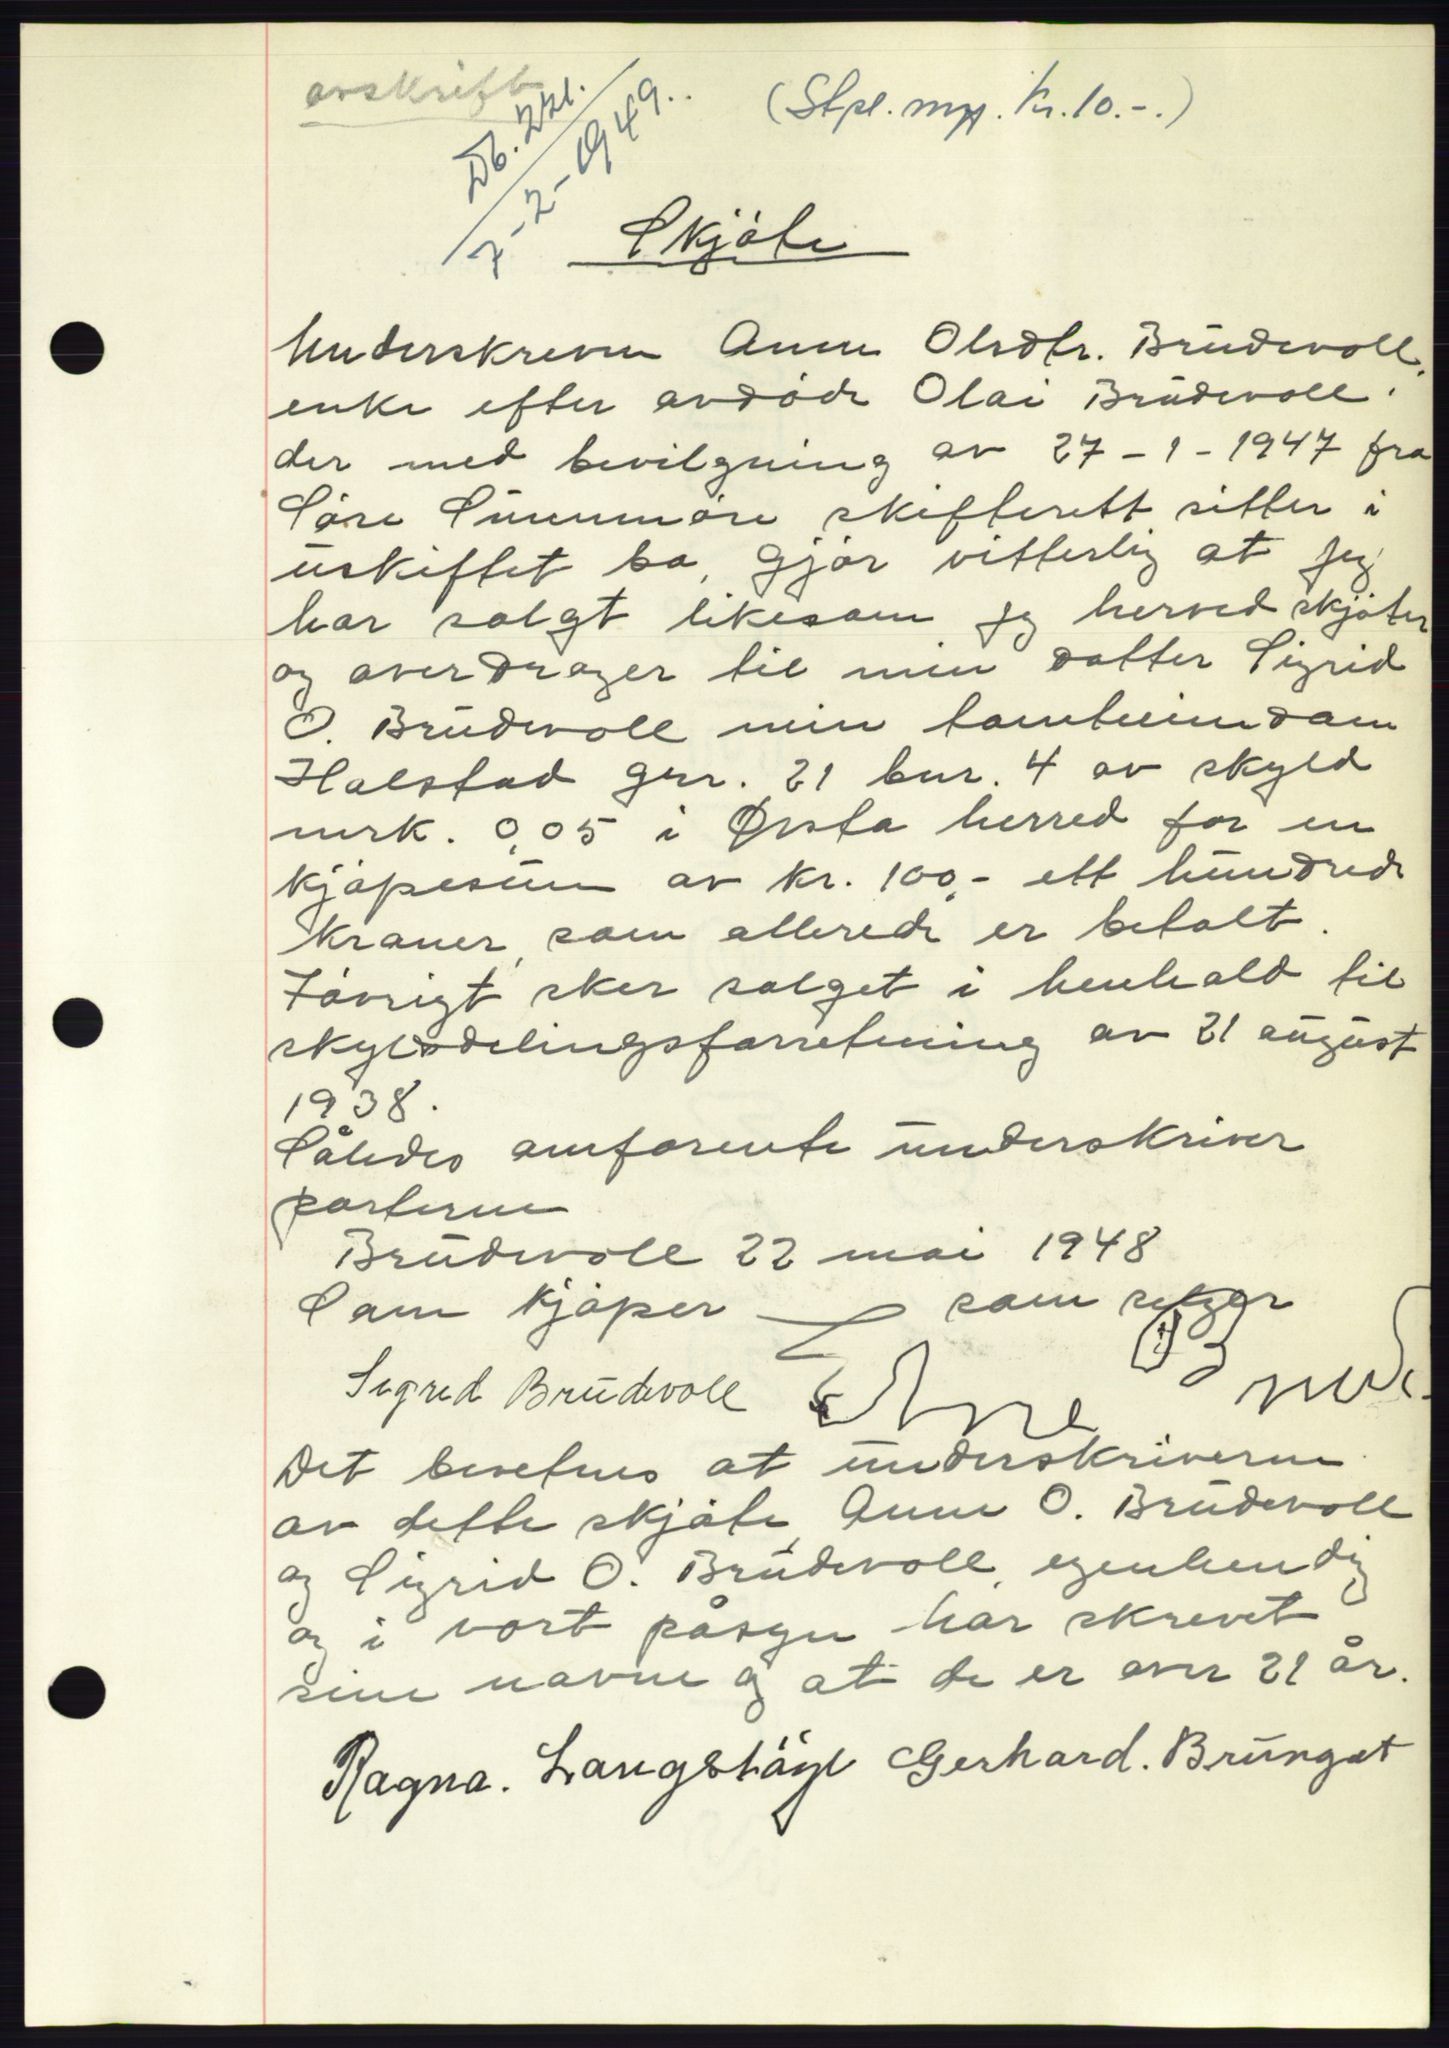 avskrift
Db. 221.
7-2-1949.
(Stpl. m. kr. 10.-.)
Skjöte
Underskreven Anne Olsdtr. Brüdevoll,
enke efter avdöde Olai Brüdevoll.
der med bevilgning av 27-1-1947 fra
Söre Sünnmöre skifterett sitter i
üskiftet bo, gjör vitterlig at jeg
har solgt likesom jeg herved skjöter
og overdrager til min datter Sigrid
O. Brüdevoll min tomteiendom
Halstad gnr. 21 bnr. 4 av skyld
mrk. 0,05 i Ørsta herred for en
kjöpesüm av kr. 100,- ett hündrede
kroner, som allerede er betalt.
Iövrigt sker salget i henhold til
skylddelingsforretning av 21 aügüst
1938.
Således omforente ünderskriver
parterne
Brüdevoll 22 mai 1948
Som kjöper som selger
Sigrid Brüdevoll Ane
Det bevitnes at ünderskriverne
av dette skjöte, Anne O. Brüdevoll
og Sigrid O. Brüdevoll, egenhendig
og i vort påsyn har skrevet
sine navne og at de er over 21 år.
Ragna. Langstöyl Gerhard. Brüngot